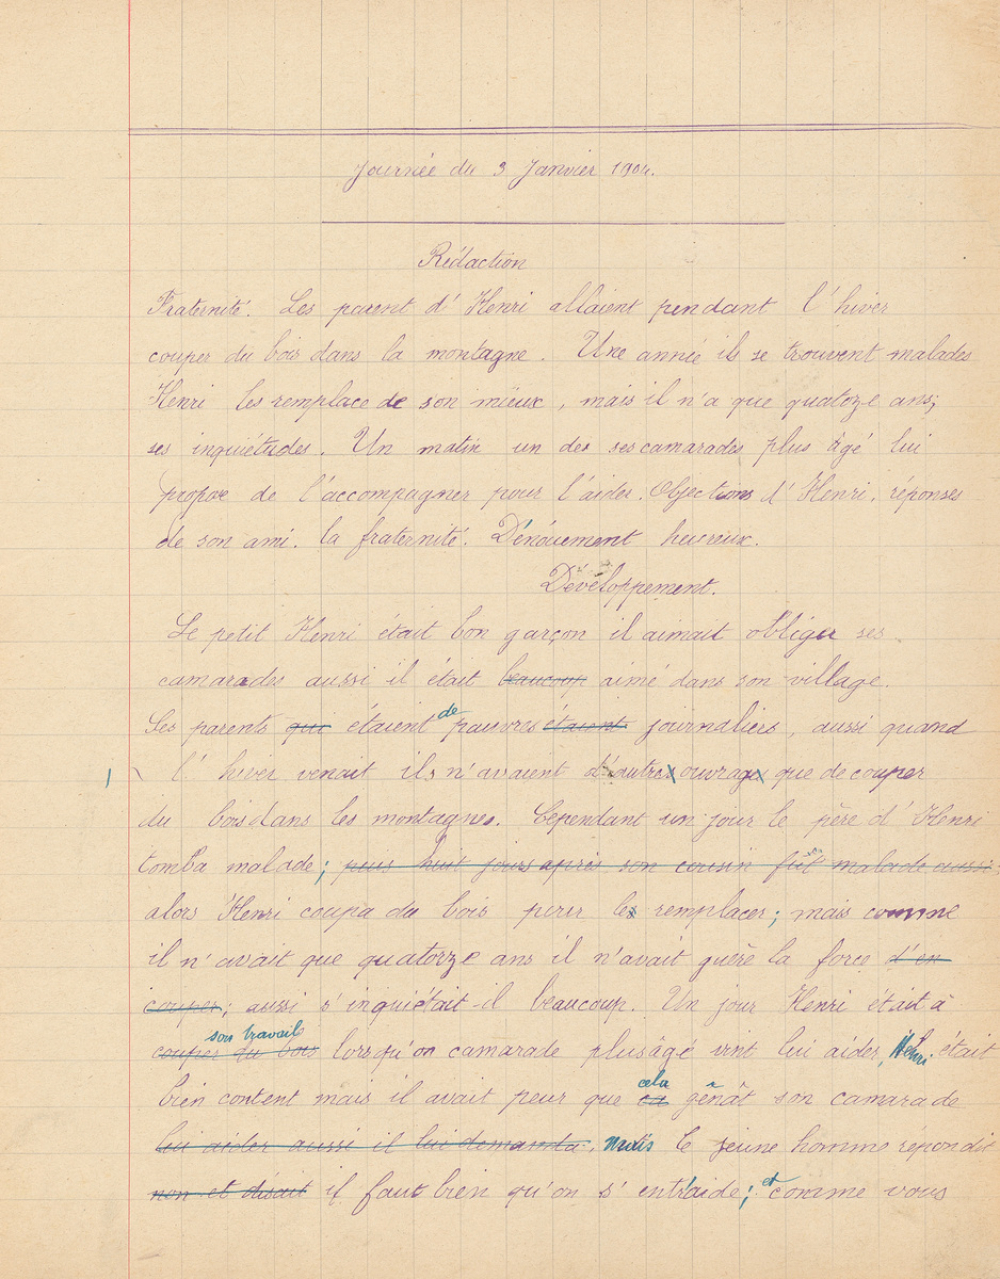 Journée du 3 Janvier 1904.
Rédaction
Fraternité. Les parent d' Henri allaient pendant l' hiver
couper du bois dans la montagne. Une année ils se trouvent malades
Henri les remplace de son mieux, mais il n'a que quatorze ans;
ses inquiétudes. Un matin un des ses camarades plus âgé lui
propose de l'accompagner pour l'aider. Objections d' Henri, réponses
de son ami. la fraternité. Dénouement heureux.
Développement.
Le petit Henri était bon garçon il aimait obliger ses
camarades aussi il était beaucoup aimé dans son village.
Ses parents que étaient de pauvres étaient journaliers, aussi quand
l' hiver venait ils n'avaient d'autre ouvrage que de couper
du bois dans les montagnes. Cependant un jour le père d' Henri
tomba malade; puis huit jours après son cousin fût malade aussi
alors Henri coupa du bois pour les remplacer; mais comme
il n'avait que quatorze ans il n'avait guère la force d'en
couper; aussi s'inquiétait-il beaucoup. Un jour Henri était à
son travail
couper du bois lorsqu'on camarade plus âgé vint lui aider, Henri était
bien content mais il avait peur que ça cela gênât son camarade
lui aider aussi il lui demanda. Mais le jeune homme répondit
non et disait il faut bien qu'on s' entr'aide; et comme vous